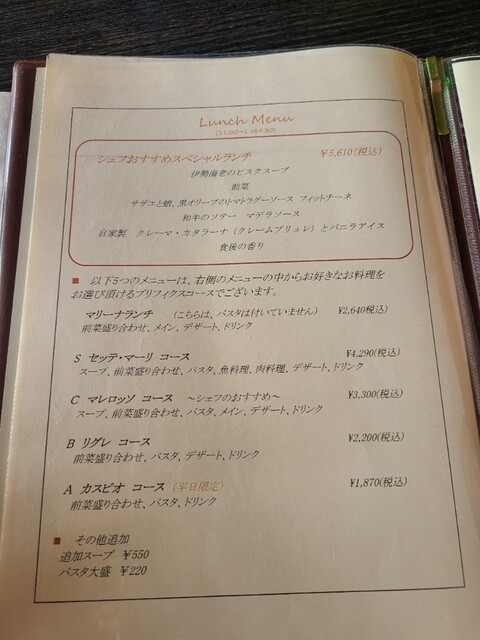 Lunch Menu
シェフおすすめスペシャルランチ ¥5,610(税込)
伊勢海老のビスクスープ
前菜
サザエと蛸、黒オリーブのトマトラグーソース フィットチーネ
和牛のソテー マデラソース
自家製 クレーマ・カタラーナ（クレームブリュレ）とバニラアイス
食後の香り
■ 以下5つのメニューは、右側のメニューの中からお好きなお料理を
お選び頂けるプリフィクスコースでございます。
マリーナランチ （こちらは、パスタは付いていません） ¥2,640(税込)
前菜盛り合わせ、メイン、デザート、ドリンク
S セッテ・マーリ コース ¥4,290(税込)
スープ、前菜盛り合わせ、パスタ、魚料理、肉料理、デザート、ドリンク
C マレロッソ コース ～シェフのおすすめ～ ¥3,300(税込)
スープ、前菜盛り合わせ、パスタ、メイン、デザート、ドリンク
B リグレ コース ¥2,200(税込)
前菜盛り合わせ、パスタ、デザート、ドリンク
A カスピオ コース (平日限定) ¥1,870(税込)
前菜盛り合わせ、パスタ、ドリンク
■ その他追加
追加スープ ¥550
パスタ大盛 ¥220